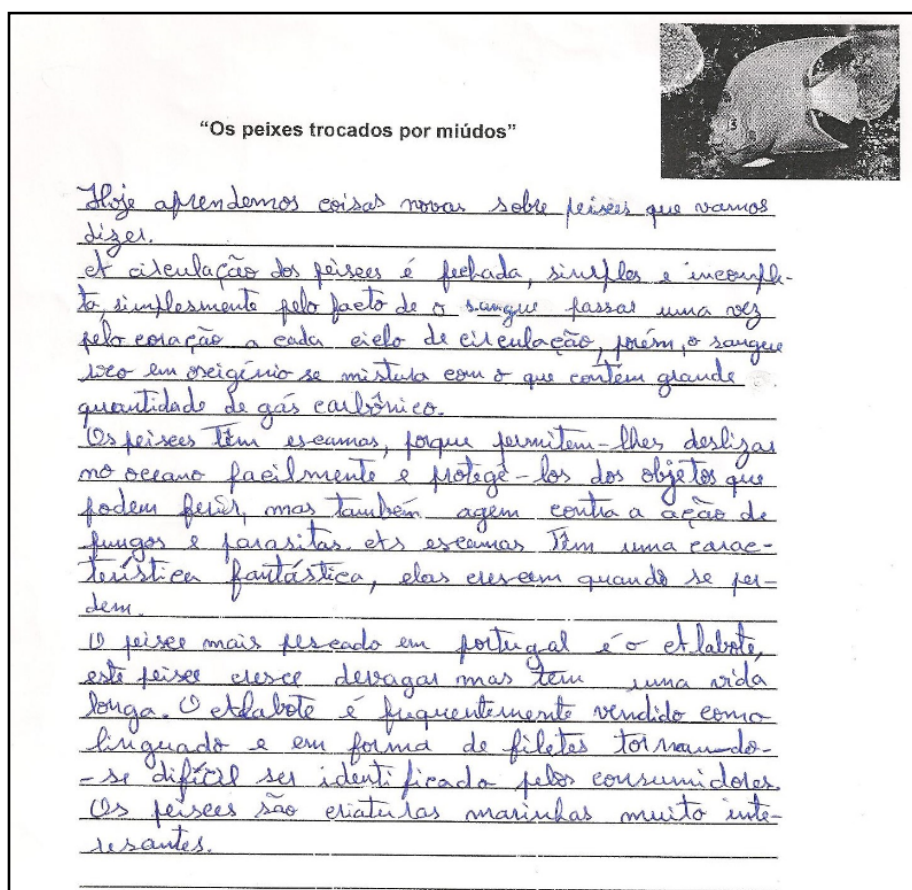 “Os peixes trocados por miúdos”
Hoje aprendemos coisas novas sobre peixes que vamos
dizer.
A circulação dos peixes é fechada, simples e incomple-
ta, simplesmente pelo facto de o sangue passar uma vez
pelo coração a cada ciclo de circulação, porém, o sangue
rico em oxigénio se mistura com o que contém grande
quantidade de gás carbónico.
Os peixes têm escamas, porque permitem-lhes deslizar
no oceano facilmente e protegê-los dos objetos que
podem ferir, mas também agem contra a ação de
fungos e parasitas. As escamas têm uma carac-
terística fantástica, elas crescem quando se per-
dem.
O peixe mais pescado em portugal é o Alabote,
este peixe cresce devagar mas tem uma vida
longa. O Alabote é frequentemente vendido como
linguado e em forma de filetes tornando-
-se difícil ser identificado pelos consumidores.
Os peixes são criaturas marinhas muito inte-
resantes.